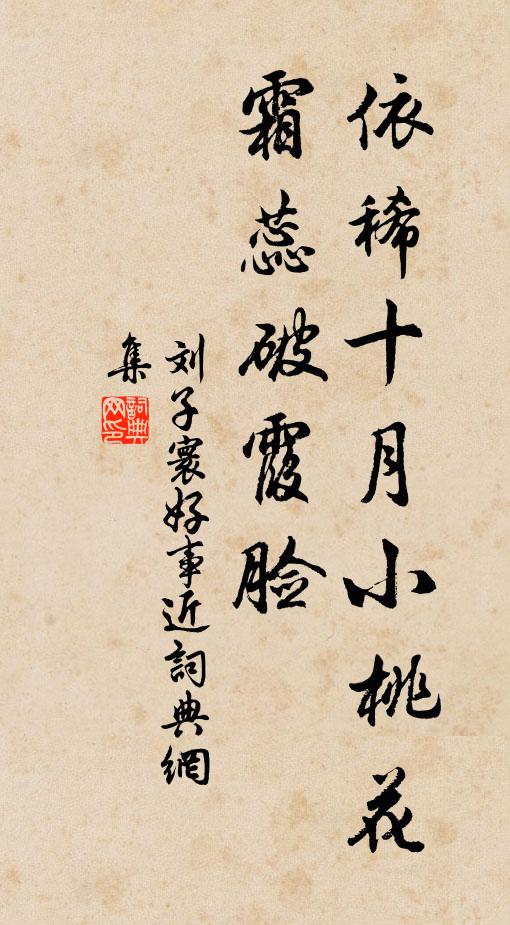 依稀十月小桃花
霜蕊破霞脸
刘子寰好事近詞典網
集
詞典
网印